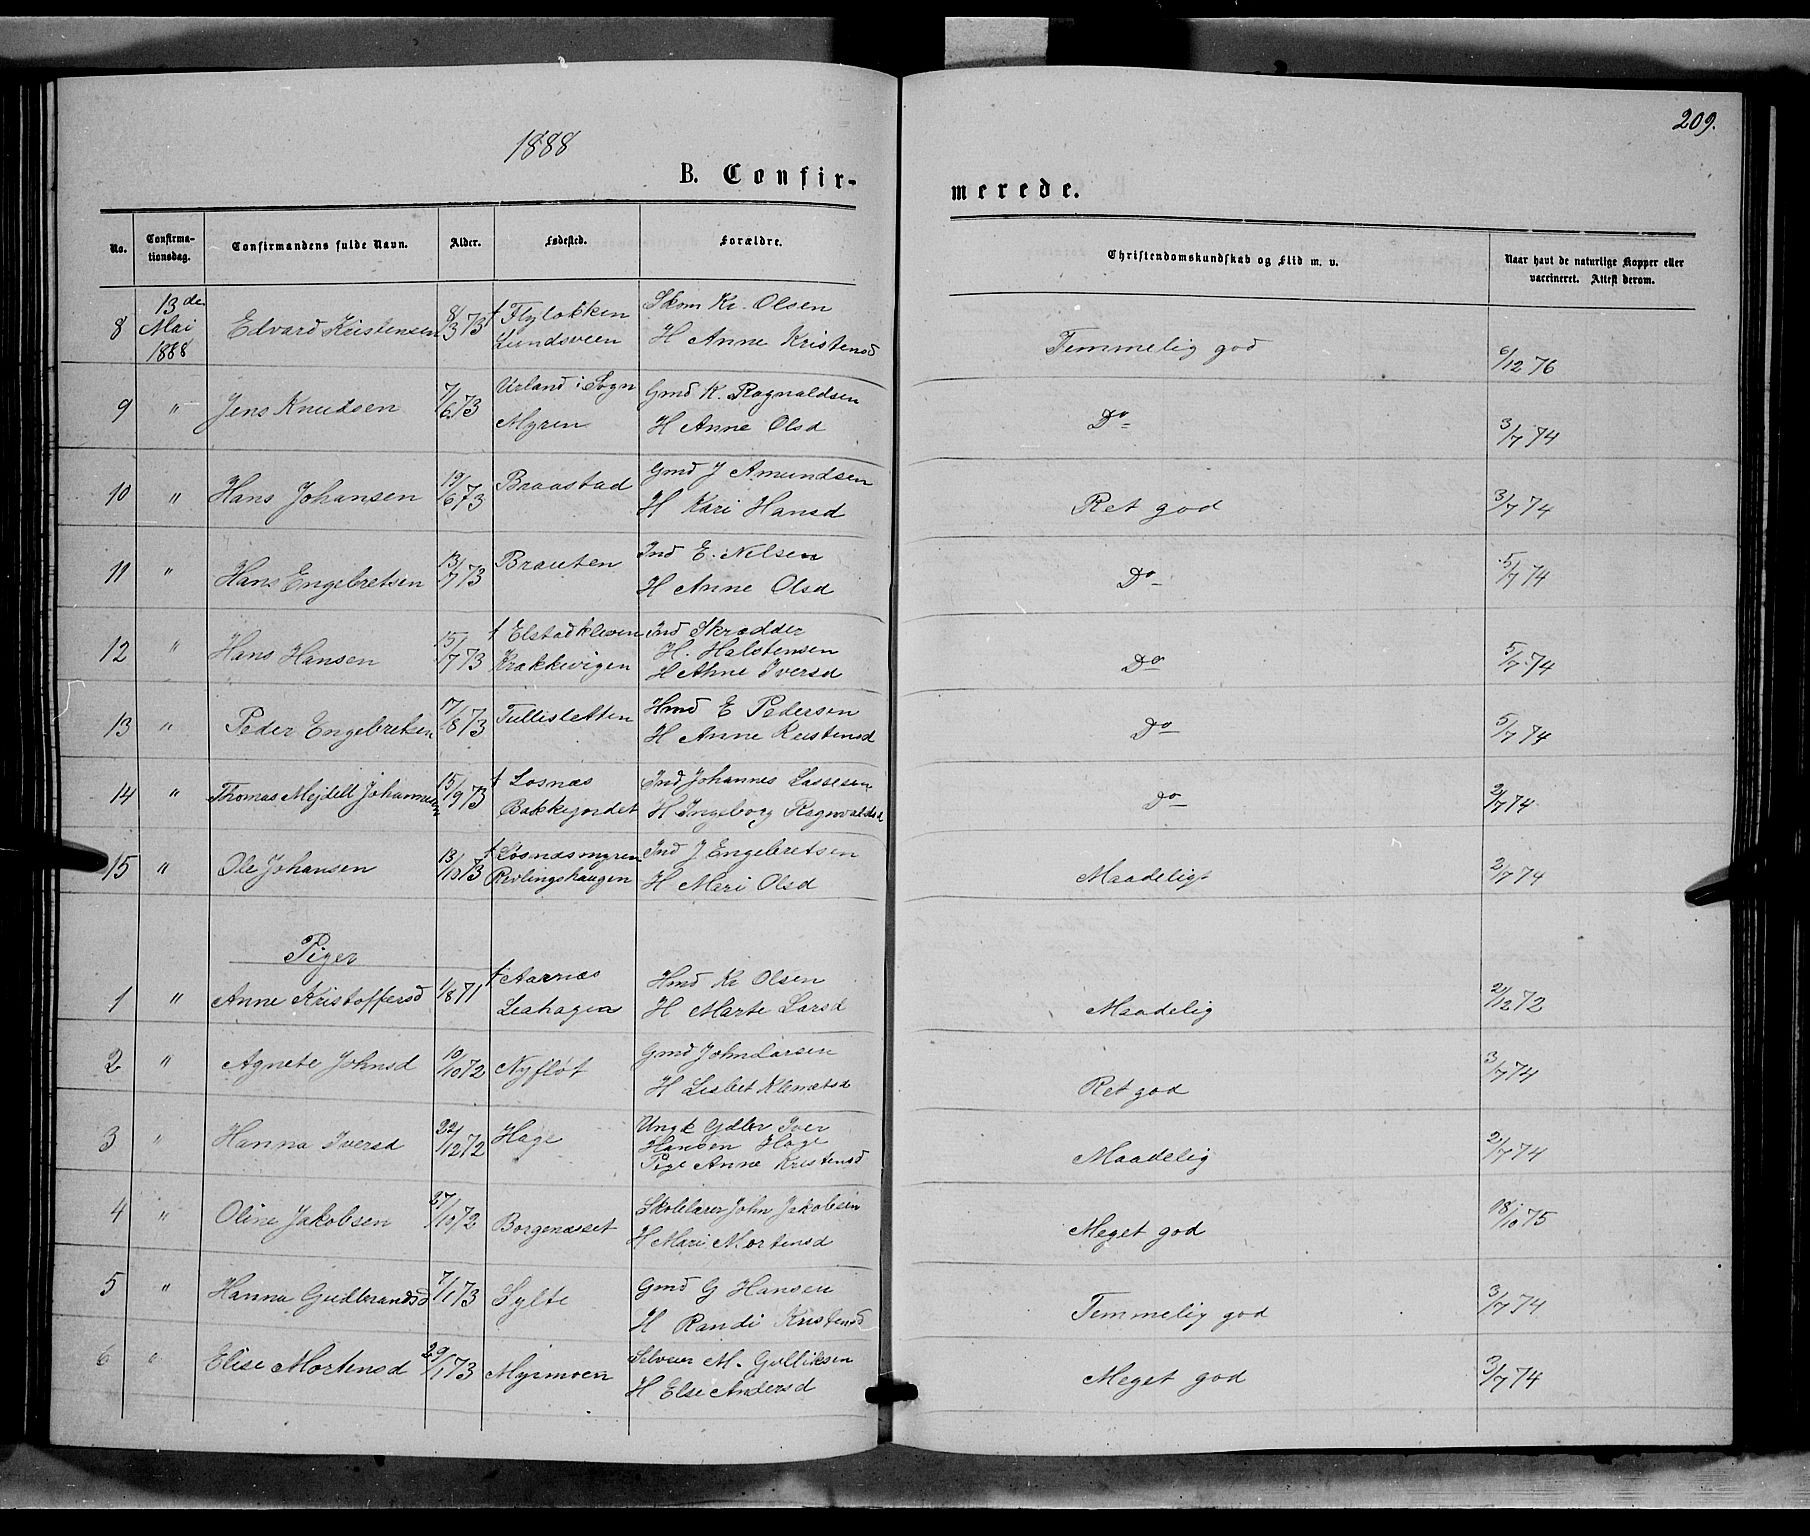 209.
1888
B. Confir-
merede.
No.
Confirma-
tionsdag.
Confirmandens fulde Navn.
Alder.
Fødested.
Forældre.
Christendomskundskab og Flid m. v.
Naar havt de naturlige Kopper eller
vaccineret. Attest derom.
8 13de Mai 1888 Edvard Kristensen 8/3 73 † Flyløkken Lundsveen Skom Kr. Olsen
H Anne Kristensd
Temmelig god 6/12 76
9 " Jens Knudsen 7/6 73 Urland i Sogn Myren Gmd K. Ragnaldsen
H Anne Olsd
Do 3/7 74
10 " Hans Johansen 19/6 73 Braastad Gmd J Amundsen
H Kari Hansd
Ret god 3/7 74
11 " Hans Engebretsen 13/7 73 Brauten Ind E. Nilsen
H Anne Olsd
Do 5/7 74
12 " Hans Hansen 15/7 73 † Elstadkleven Krækkevigen Ind Skrædder
H. Halstensen
H Anne Iversd
Do 5/7 74
13 " Peder Engebretsen 17/8 73 Tullisletten Hmd E Pedersen
H Anne Kristensd
Do 5/7 74
14 " Thomas Mejdell Johannesen 15/9 73 † Losnæs Bakkejordet Ind Johannes Lassesen
H Ingeborg Ragnvaldsd
Do 2/7 74
15 " Ole Johansen 13/10 73 † Losnæsmyren Revlingshaugen Ind J Engebretsen
H Mari Olsd
Maadeligt 2/7 74
Piger
1 " Anne Kristoffersd 1/8 71 † Aarnæs Leahagen Hmd Kr Olsen
H Marte Larsd
Maadelig 2/12 72
2 " Agnete Johnsd 10/10 72 Nyfløt Gmd John Larsen
H Lisbet Klemetsd
Ret god 3/7 74
3 " Hanna Iversd 22/12 72 Hage Ungk Gdbr Iver
Hansen Hage
Pige Anne Kristensd
Maadelig 2/7 74
4 " Oline Jakobsen 27/10 72 Borgenæsset Skolelærer John Jakobsen
H Mari Mortensd
Meget god 18/10 75
5 " Hanna Gudbrandsd 7/1 73 Sylte Gmd G Hansen
H Randi Kristensd
Temmelig god 3/7 74
6 " Elise Mortensd 29/1 73 Myrmoen Selveier M. Gulliksen
H Else Andersd
Meget god 3/7 74